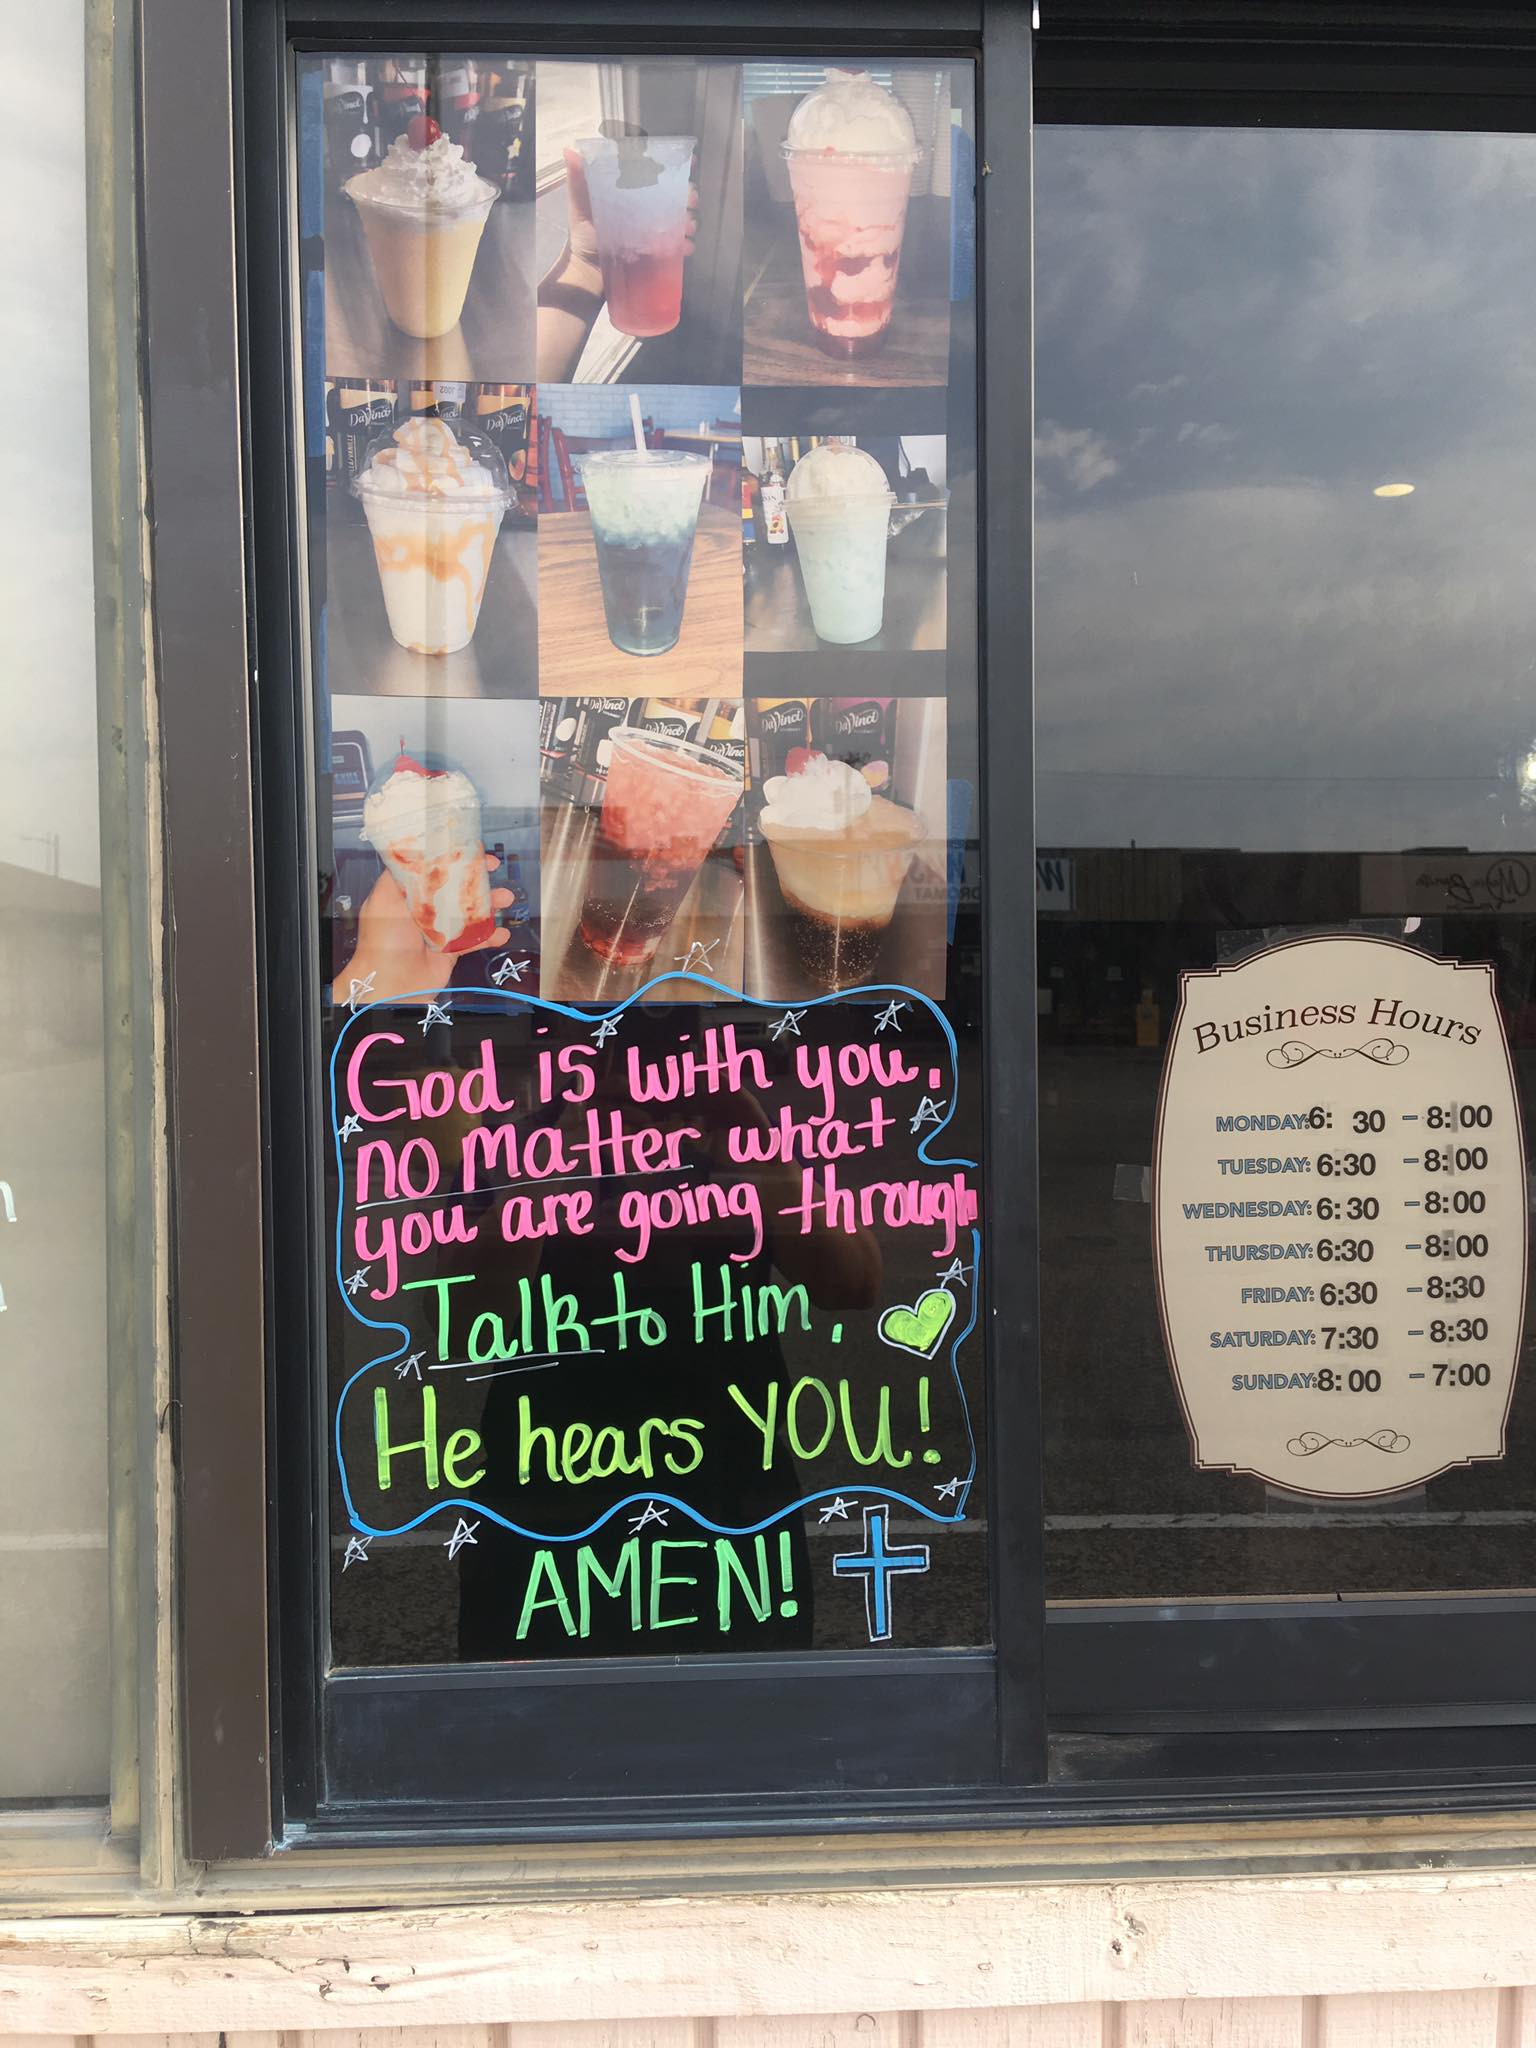 DaVinci
DaVinci
DaVinci
DaVinci
DaVinci
DaVinci
God is with you,
no matter what
you are going through
Talk to Him.
He hears YOU!
AMEN!
Business Hours
MONDAY: 6:30 - 8:00
TUESDAY: 6:30 - 8:00
WEDNESDAY: 6:30 - 8:00
THURSDAY: 6:30 - 8:00
FRIDAY: 6:30 - 8:30
SATURDAY: 7:30 - 8:30
SUNDAY: 8:00 - 7:00